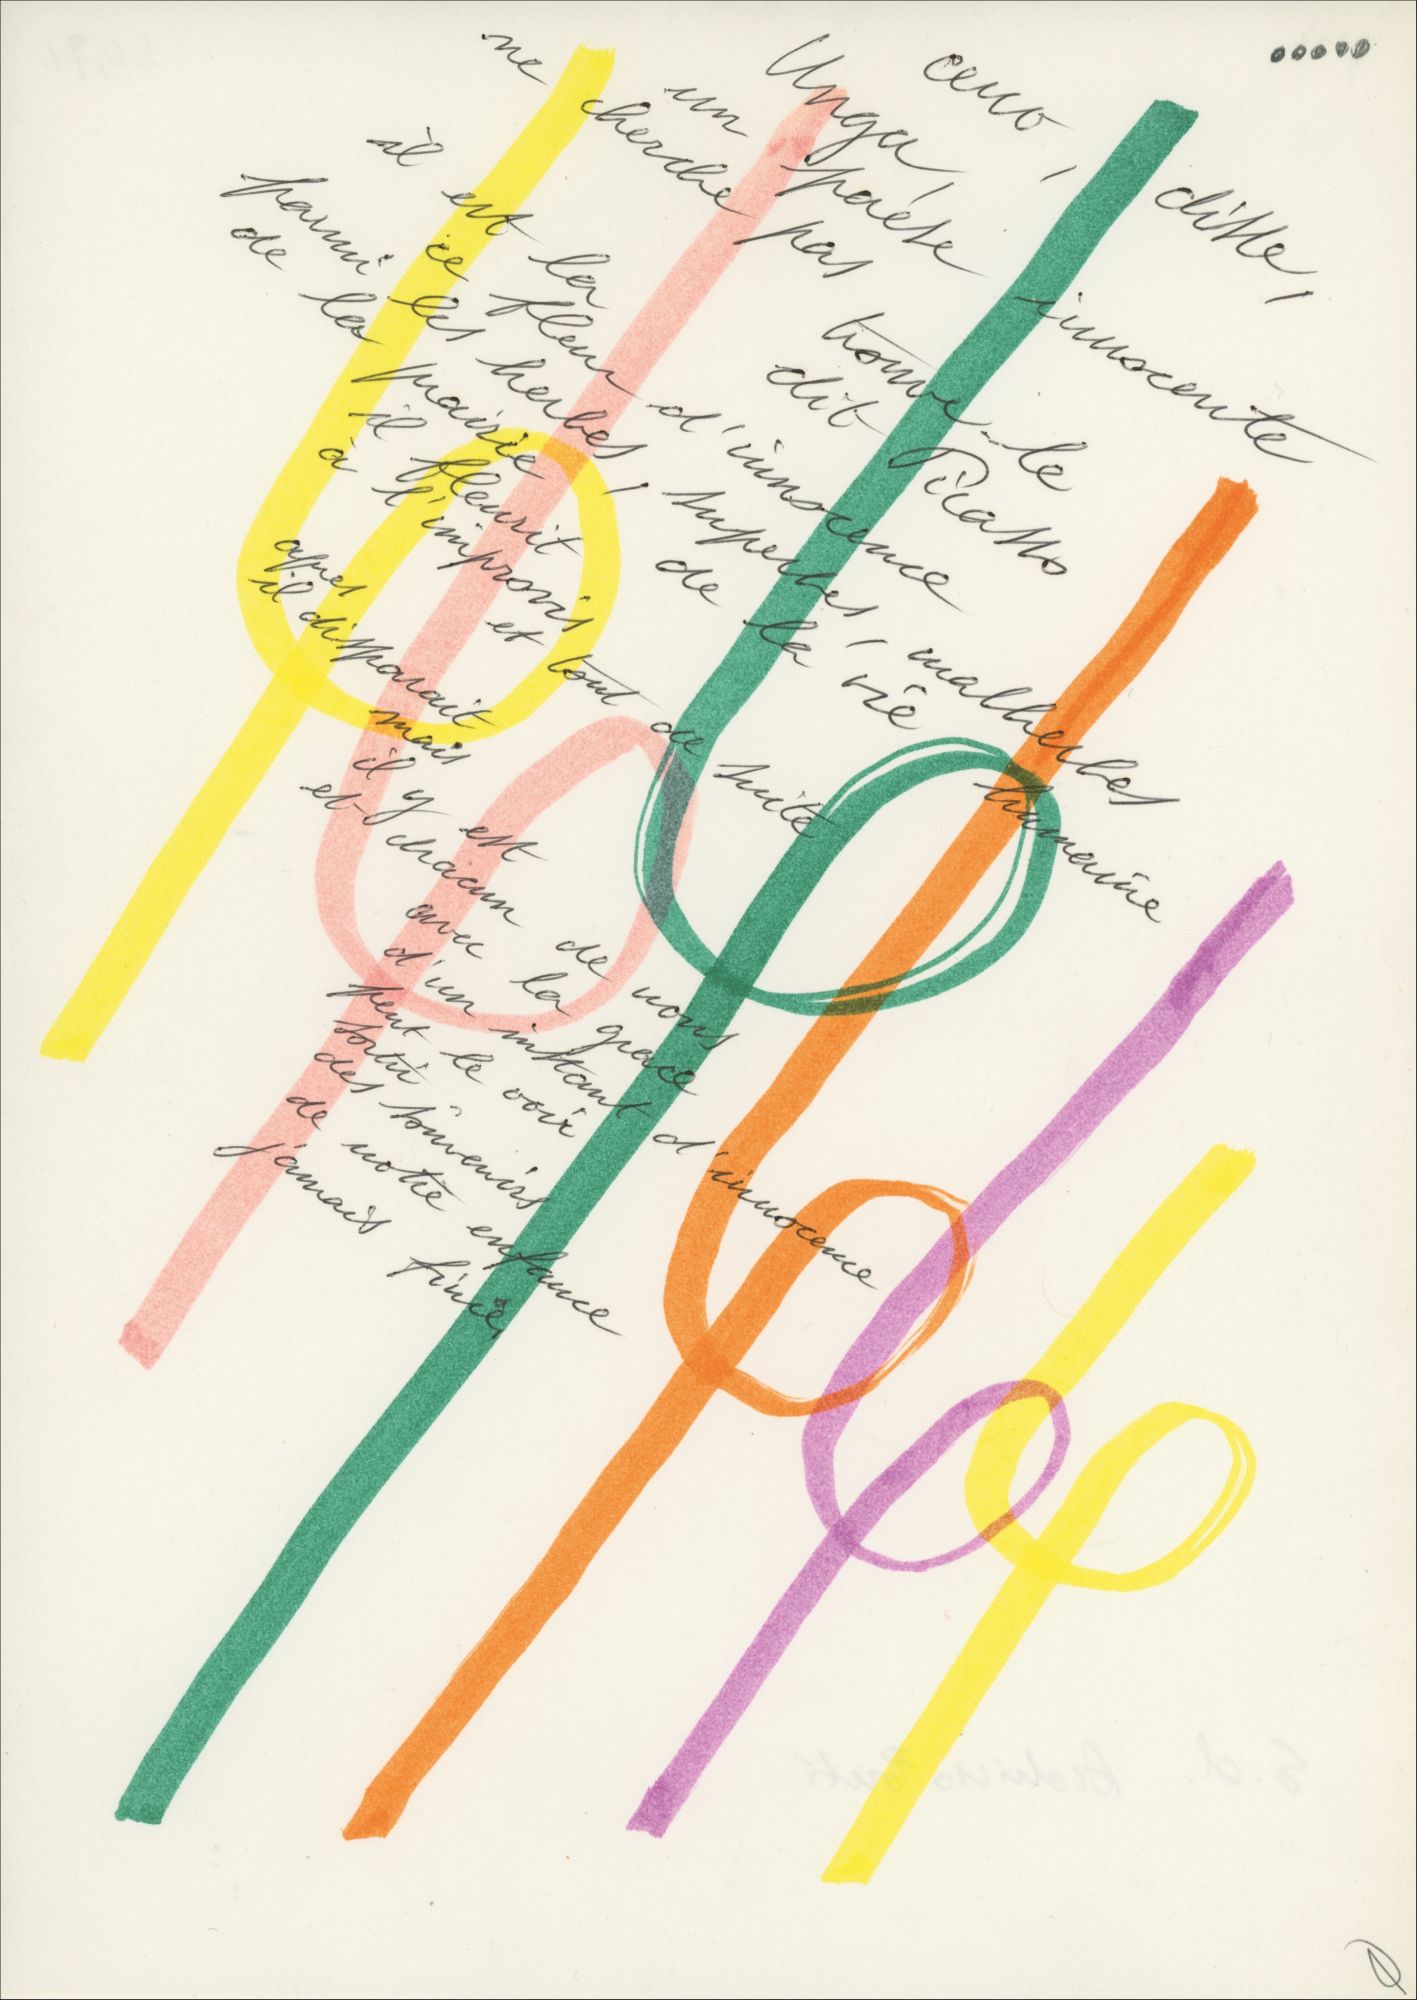 Unga, ditte,
un poète innocente
ne cherche pas trouve-le
dit Picasso
il est la
ce fleur d'innocence
parmi les herbes, superbes, malherbes
de la prairie de la vie humaine
il fleurit
à l'improvis et tout de suite
apres
il disparait
mais
il y est
et chacun de nous
avec la grace
d'un instant d'innocence
peut le voir
sortir
des souvenirs
de notre enfance
jamais finie